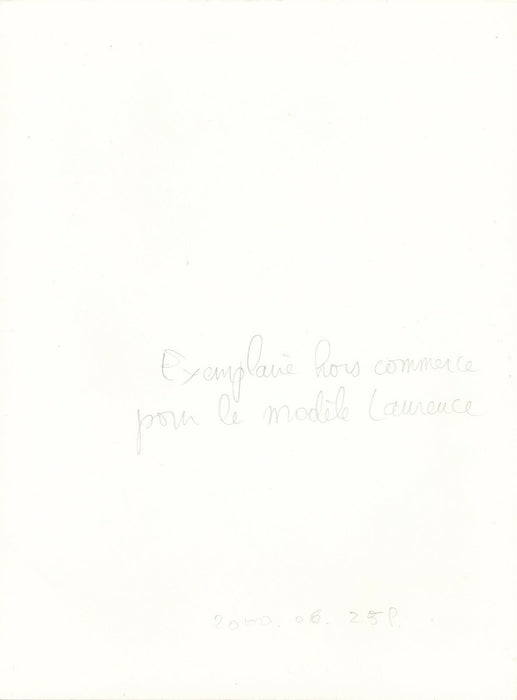 Exemplaire hors commerce
pour le modèle Laurence
2000. 06. 25P.